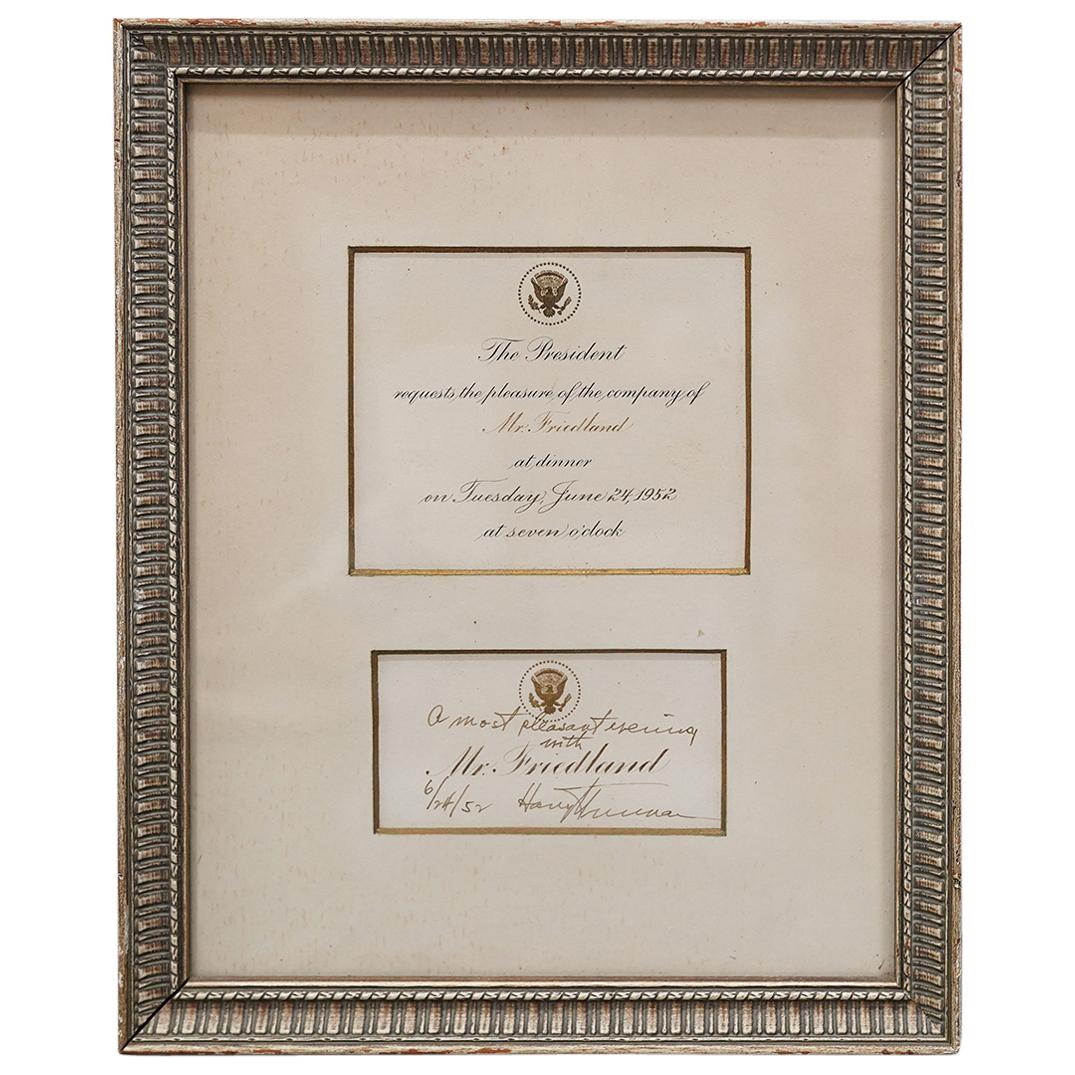 The President
requests the pleasure of the company of
Mr. Friedland
at dinner
on Tuesday, June 24, 1952
at seven o'clock
A most pleasant evening
with
Mr. Friedland
6/24/52 Harry Truman